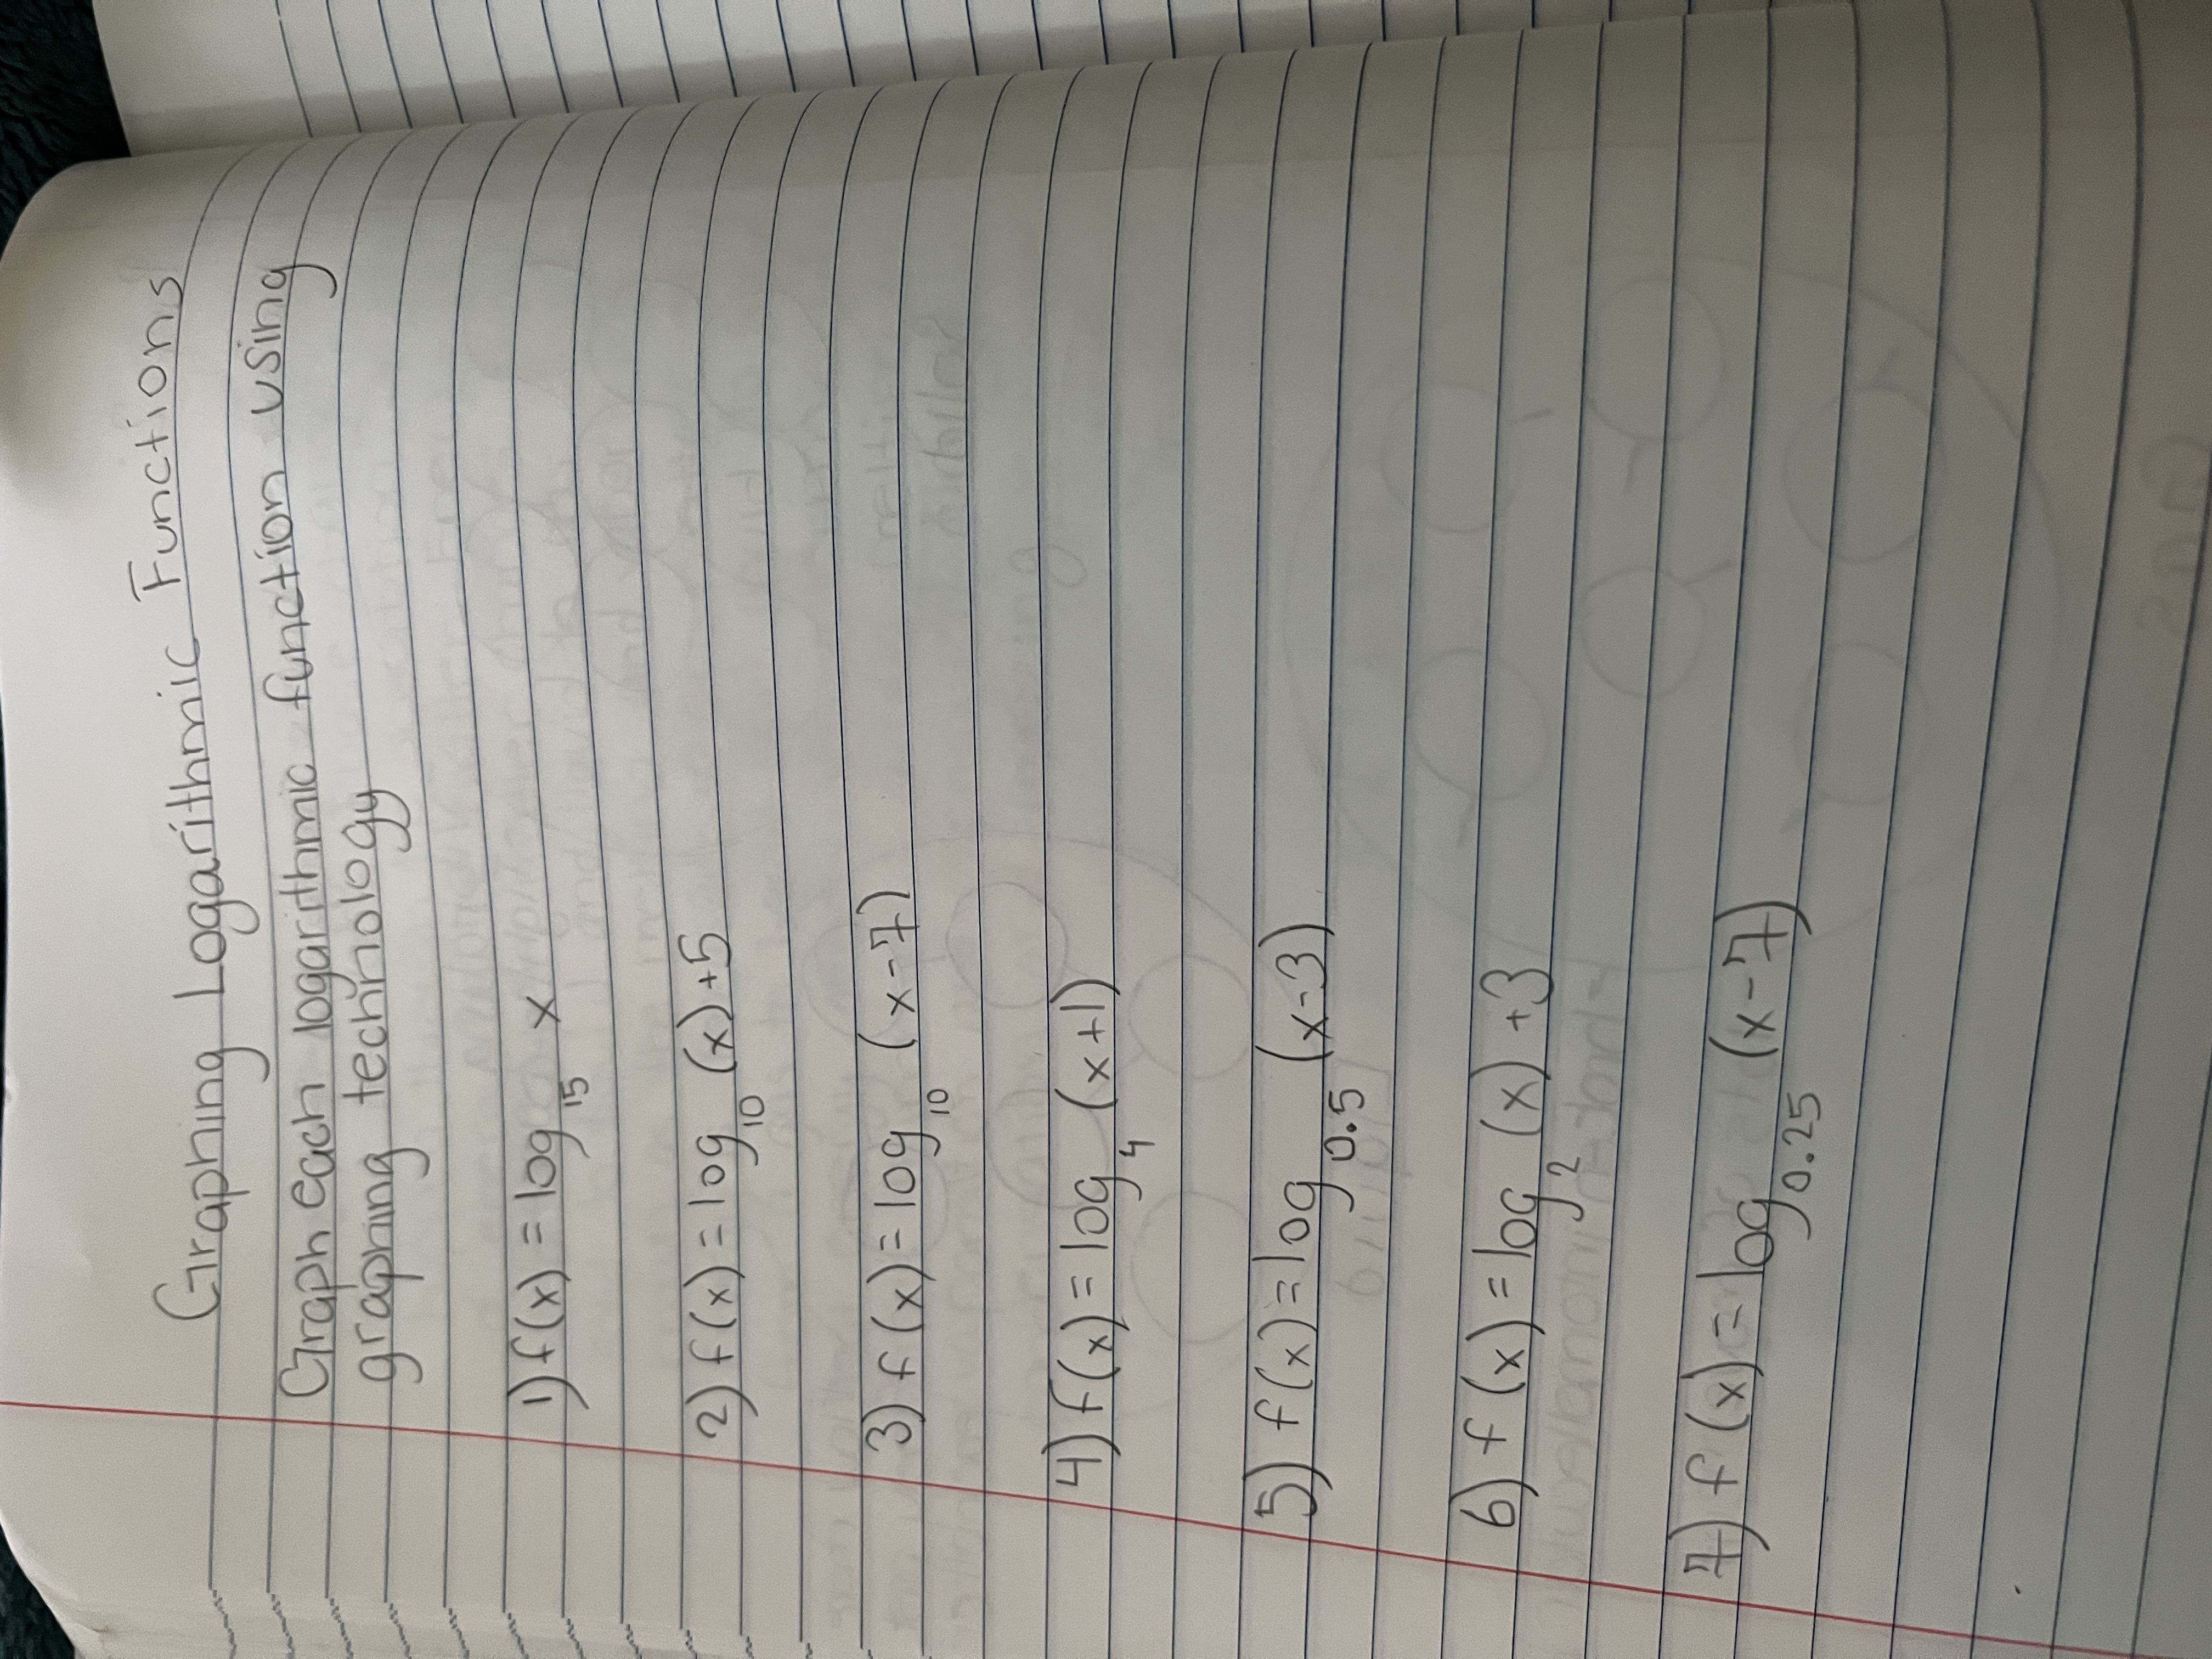 Graphing Logarithmic Functions
Graph each logarithmic function using
graphing technology
1) f(x) = log₁₅ x
2) f(x) = log₁₀ (x)+5
3) f(x) = log₁₀ (x-7)
4) f(x) = log₄ (x+1)
5) f(x) = log₀.₅ (x-3)
6) f(x) = log₂ (x) +3
7) f(x) = log₀.₂₅ (x-7)